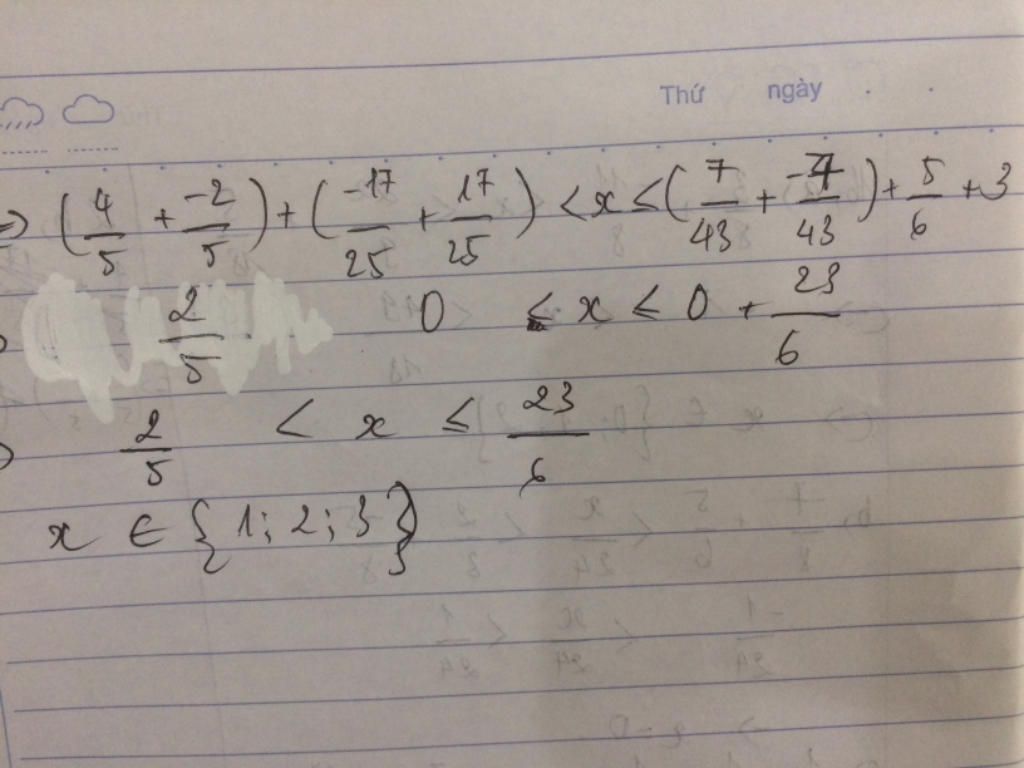 Thứ ngày . .
=> (4/5 + -2/5) + (-17/25 + 17/25) < x ≤ (7/43 + -7/43) + 5/6 + 3
2/5 0 ≤ x ≤ 0 + 23/6
2/5 < x ≤ 23/6
x ∈ {1; 2; 3}